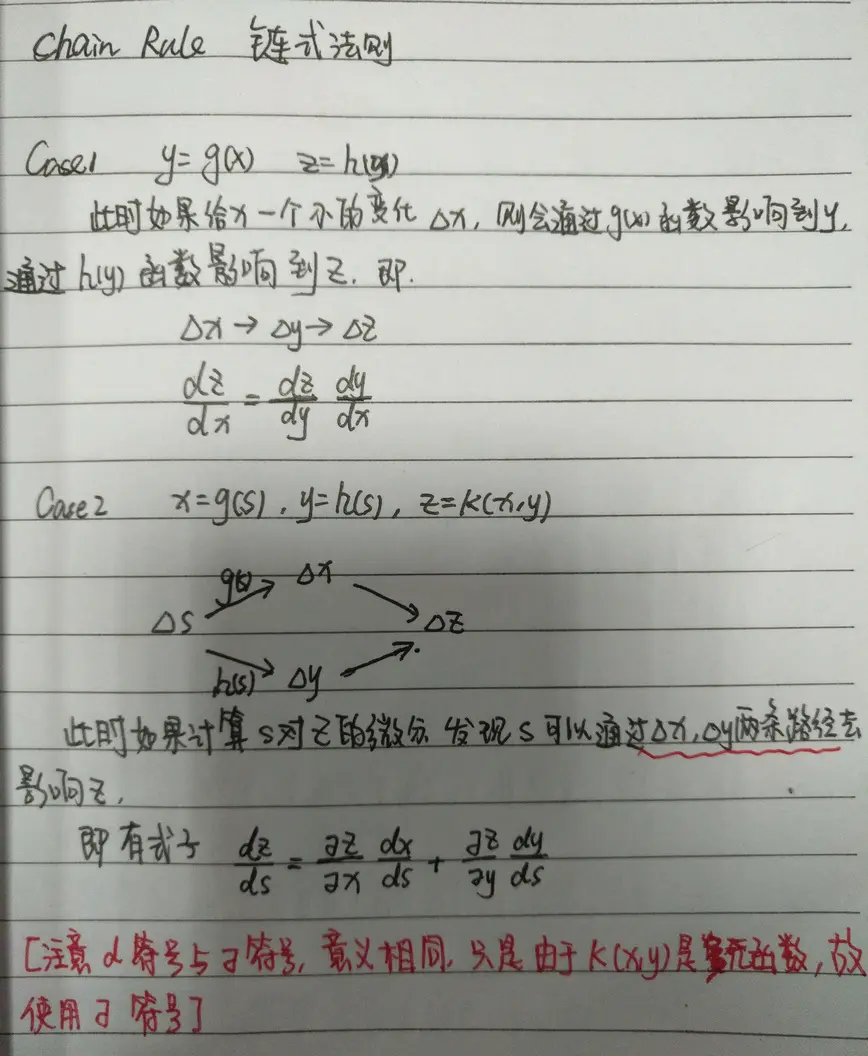 Chain Rule 链式法则
Case1 y=g(x) z=h(y)
此时如果给x一个小的变化 Δx, 则会通过g(x)函数影响到y,
通过h(y)函数影响到z. 即.
Δx→Δy→Δz
dz/dx = dz/dy dy/dx
Case2 x=g(s), y=h(s), z=k(x,y)
g(s) Δx
Δs Δz
h(s) Δy
此时如果计算s对z的微分 发现s可以通过Δx,Δy两条路径去
影响z,
即有式子 dz/ds = ∂z/∂x dx/ds + ∂z/∂y dy/ds
[注意d符号与∂符号, 意义相同, 只是由于k(x,y)是多元函数, 故
使用∂符号]